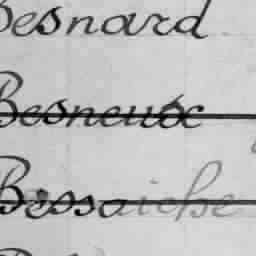 Besnard
Besneux
Bissaiche